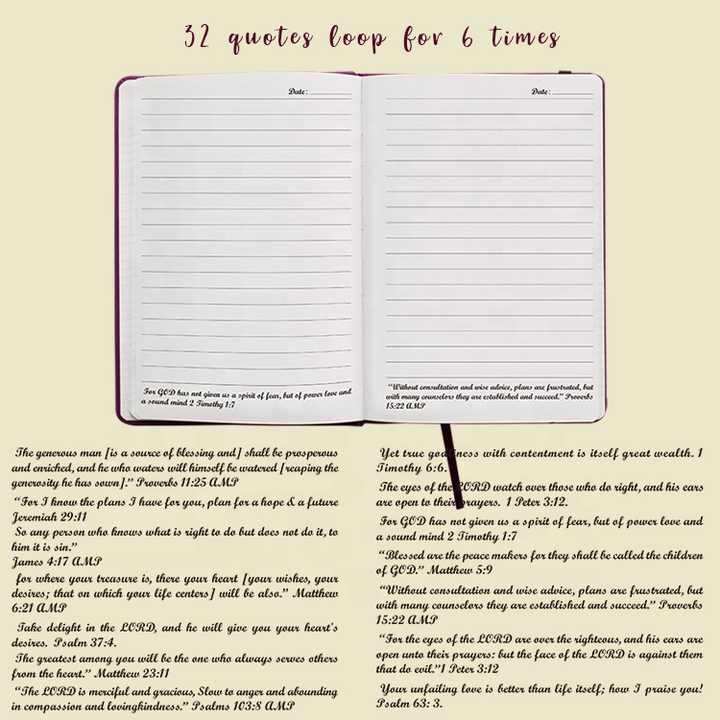 32 quotes loop for 6 times
Date:
Date:
For GOD has not given us a spirit of fear, but of power love and
a sound mind 2 Timothy 1:7
"Without consultation and wise advice, plans are frustrated, but
with many counselors they are established and succeed." Proverbs
15:22 AMP
The generous man [is a source of blessing and] shall be prosperous
and enriched, and he who waters will himself be watered [reaping the
generosity he has sown]." Proverbs 11:25 AMP
"For I know the plans I have for you, plan for a hope & a future
Jeremiah 29:11
So any person who knows what is right to do but does not do it, to
him it is sin."
James 4:17 AMP
for where your treasure is, there your heart [your wishes, your
desires; that on which your life centers] will be also." Matthew
6:21 AMP
Take delight in the LORD, and he will give you your heart's
desires. Psalm 37:4.
The greatest among you will be the one who always serves others
from the heart." Matthew 23:11
"The LORD is merciful and gracious, Slow to anger and abounding
in compassion and lovingkindness." Psalms 103:8 AMP
Yet true godliness with contentment is itself great wealth. 1
Timothy 6:6.
The eyes of the LORD watch over those who do right, and his ears
are open to their prayers. 1 Peter 3:12.
For GOD has not given us a spirit of fear, but of power love and
a sound mind 2 Timothy 1:7
"Blessed are the peace makers for they shall be called the children
of GOD." Matthew 5:9
"Without consultation and wise advice, plans are frustrated, but
with many counselors they are established and succeed." Proverbs
15:22 AMP
"For the eyes of the LORD are over the righteous, and his ears are
open unto their prayers: but the face of the LORD is against them
that do evil."1 Peter 3:12
Your unfailing love is better than life itself; how I praise you!
Psalm 63: 3.